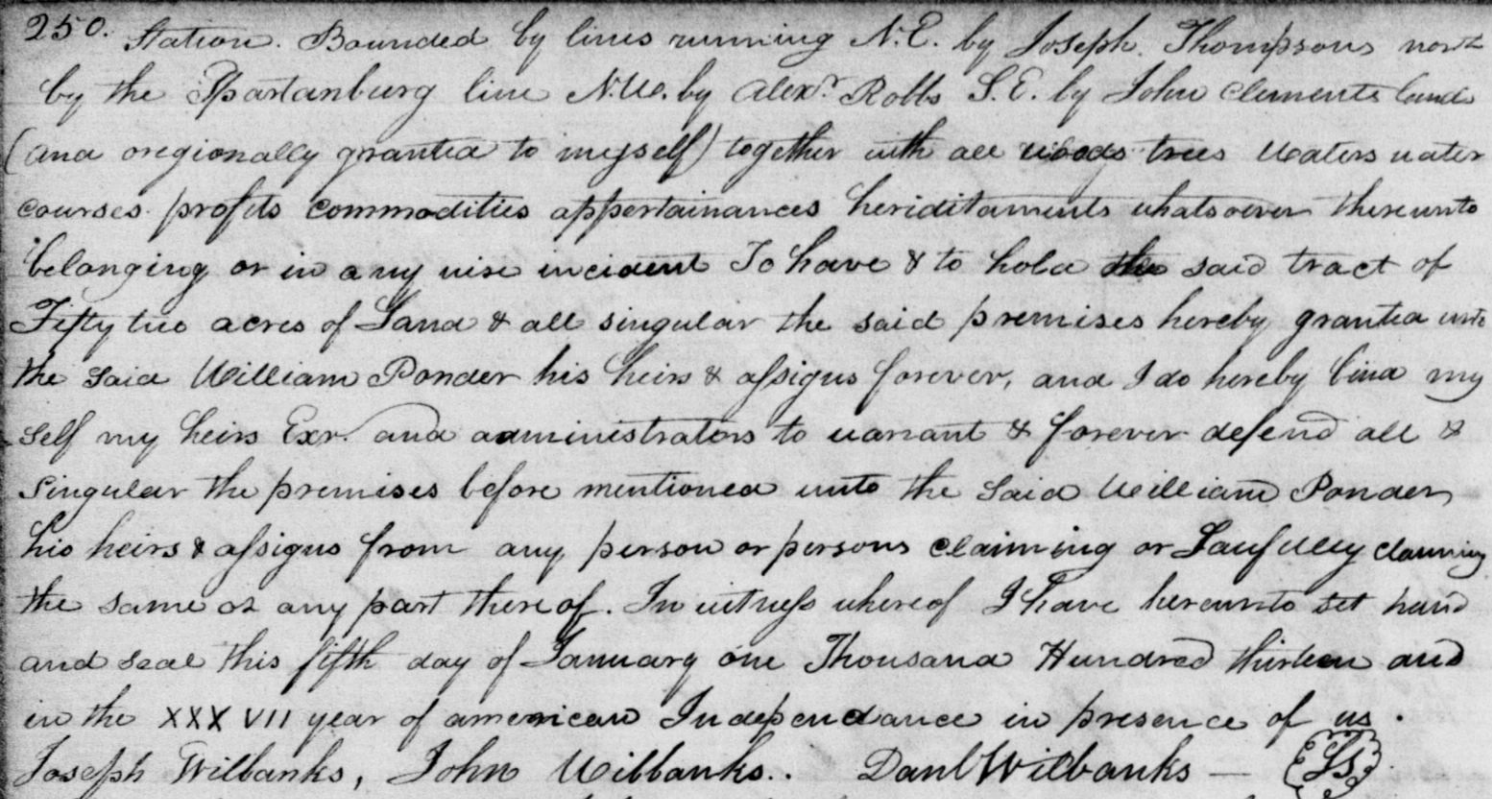 250. Station. Bounded by lines running N.E. by Joseph Thompsons north
by the Spartanburg line N.W. by Alexr. Robbs S.E. by John Clements land
(and oregionally granted to myself) together with all woods trees Waters water
courses profits commodities appertainances heriditaments whatsoever thereunto
belonging or in any wise incident To have & to hold the said tract of
Fifty two acres of Land & all singular the said premises hereby granted unto
the said William Ponder his heirs & assigns forever, and I do hereby bind my
self my heirs Exr. and administrators to warrant & forever defend all &
Singular the premises before mentioned unto the said William Ponder
his heirs & assigns from any person or persons claiming or Lawfully claiming
the same or any part thereof. In witness whereof I have hereunto set hand
and seal this fifth day of January one Thousand Hundred thirteen and
in the XXXVII year of american Independance in presence of us.
Joseph Wilbanks, John Wilbanks.. Danl Wilbanks — LS